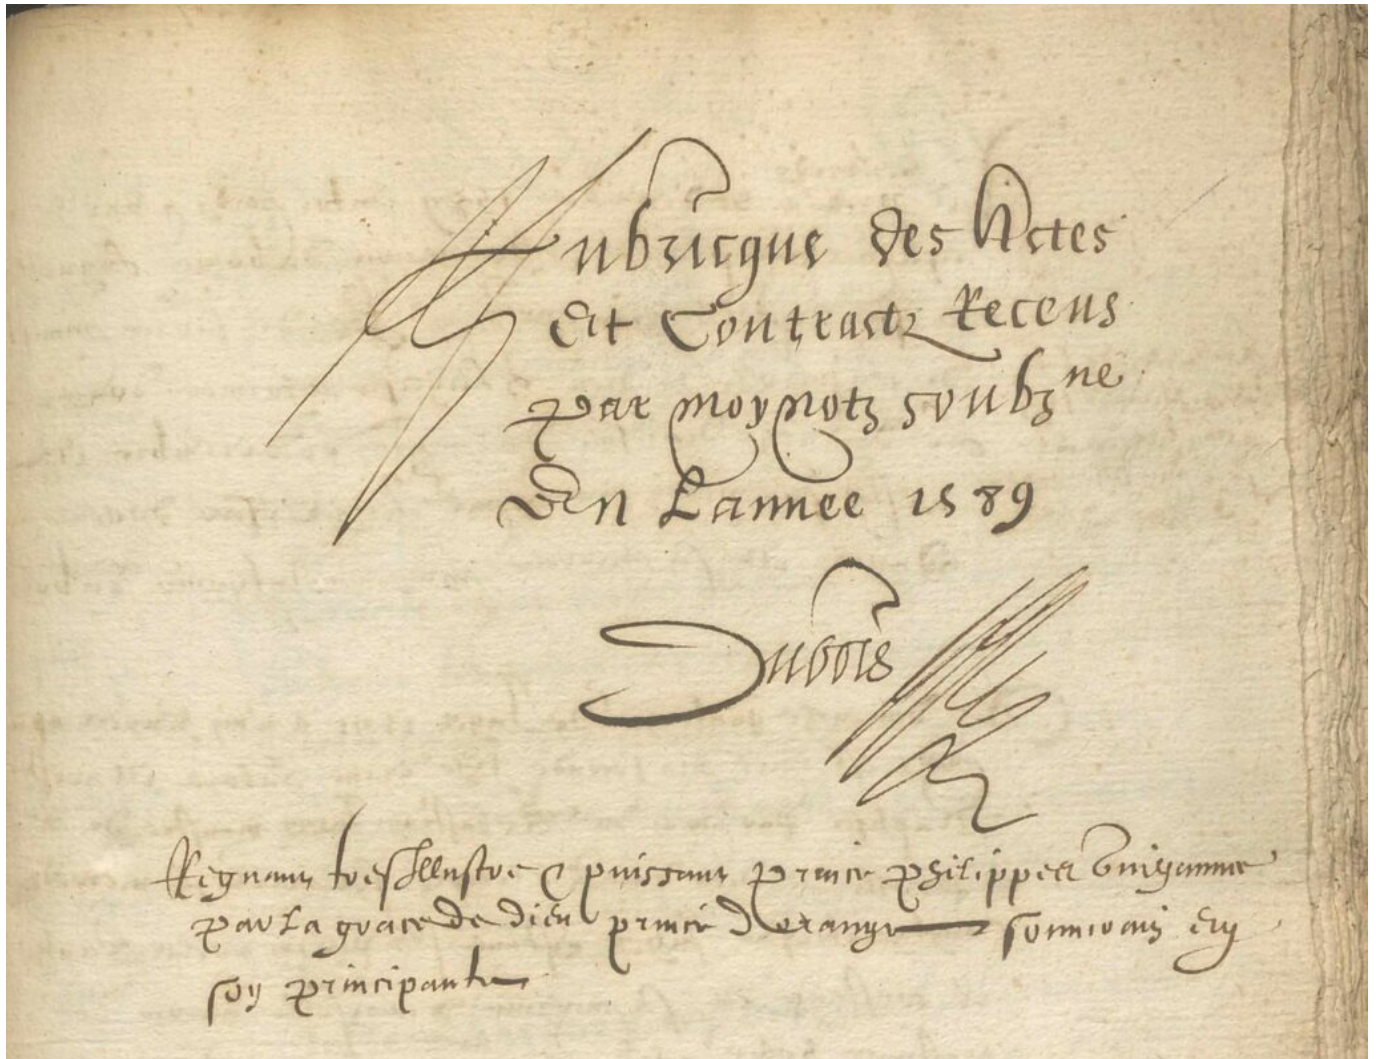 Rubricque des Actes
Et Contractz Receus
par moy notz soubzne
En Lannee 1589
Dubois
Regnant tresIllustre & puissant prince philippes Guigaume
par La grace de dieu prince d orange souverain en
son principaulte